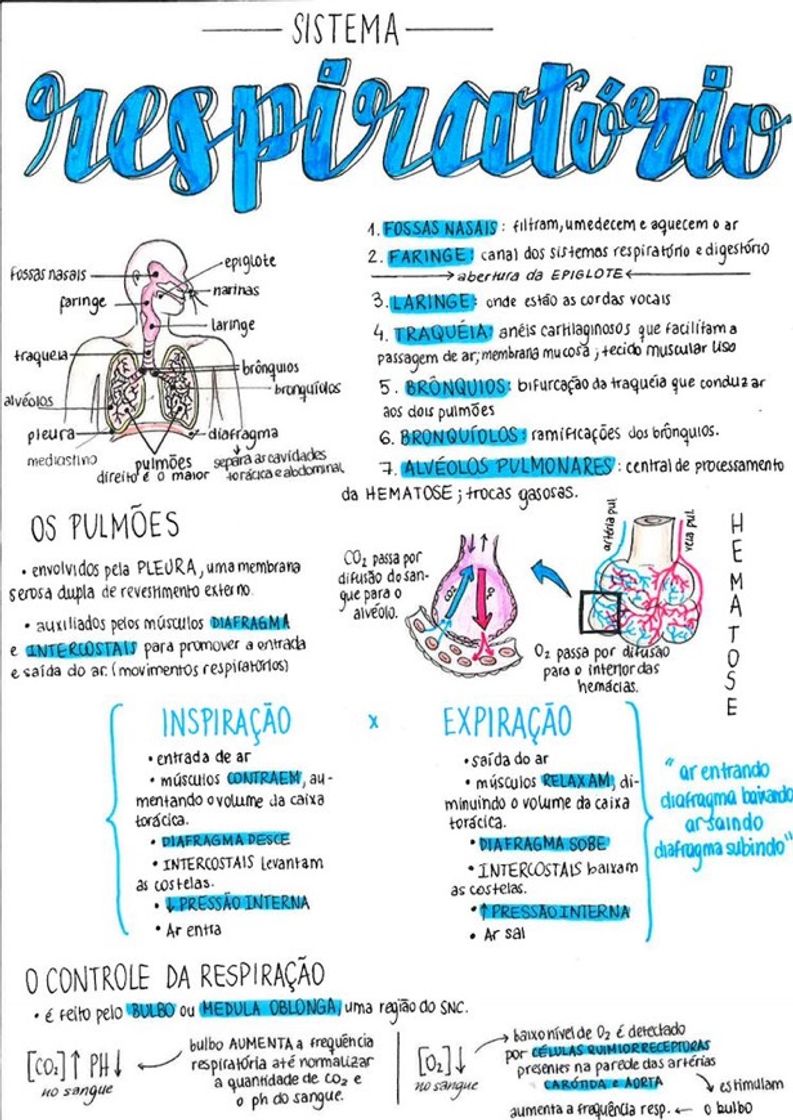 SISTEMA
respiratório
1. FOSSAS NASAIS: filtram, umedecem e aquecem o ar
2. FARINGE: canal dos sistemas respiratório e digestório
→ abertura da EPIGLOTE ←
3. LARINGE: onde estão as cordas vocais
4. TRAQUÉIA: anéis cartilaginosos que facilitam a
passagem de ar; membrana mucosa; tecido muscular liso
5. BRÔNQUIOS: bifurcação da traquéia que conduz ar
aos dois pulmões
6. BRONQUÍOLOS: ramificações dos brônquios.
7. ALVÉOLOS PULMONARES: central de processamento
da HEMATOSE; trocas gasosas.
fossas nasais
epiglote
narinas
faringe
laringe
traqueia
brônquios
bronquíolos
alvéolos
pleura
diafragma
mediastino
pulmões
direito é o maior
separa as cavidades
torácica e abdominal
OS PULMÕES
• envolvidos pela PLEURA, uma membrana
serosa dupla de revestimento externo.
• auxiliados pelos músculos DIAFRAGMA
e INTERCOSTAIS para promover a entrada
e saída do ar. (movimentos respiratórios)
CO₂ passa por
difusão do san-
gue para o
alvéolo.
CO₂
O₂
artéria pul.
veia pul.
O₂ passa por difusão
para o interior das
hemácias.
HEMATOSE
INSPIRAÇÃO x EXPIRAÇÃO
• entrada de ar
• músculos CONTRAEM, au-
mentando o volume da caixa
torácica.
• DIAFRAGMA DESCE
• INTERCOSTAIS levantam
as costelas.
• ↓ PRESSÃO INTERNA
• Ar entra
• saída do ar
• músculos RELAXAM, di-
minuindo o volume da caixa
torácica.
• DIAFRAGMA SOBE
• INTERCOSTAIS baixam
as costelas.
• ↑ PRESSÃO INTERNA
• Ar sai
"ar entrando
diafragma baixando
ar saindo
diafragma subindo"
O CONTROLE DA RESPIRAÇÃO
• é feito pelo BULBO ou MEDULA OBLONGA, uma região do SNC.
[CO₂]↑ PH↓
no sangue
bulbo AUMENTA a frequência
respiratória até normalizar
a quantidade de CO₂ e
o ph do sangue.
[O₂]↓
no sangue
baixo nível de O₂ é detectado
por CÉLULAS QUIMIORRECEPTURAS
presentes na parede das artérias
CARÓTIDA e AORTA
estimulam
o bulbo
aumenta a frequência resp. ←